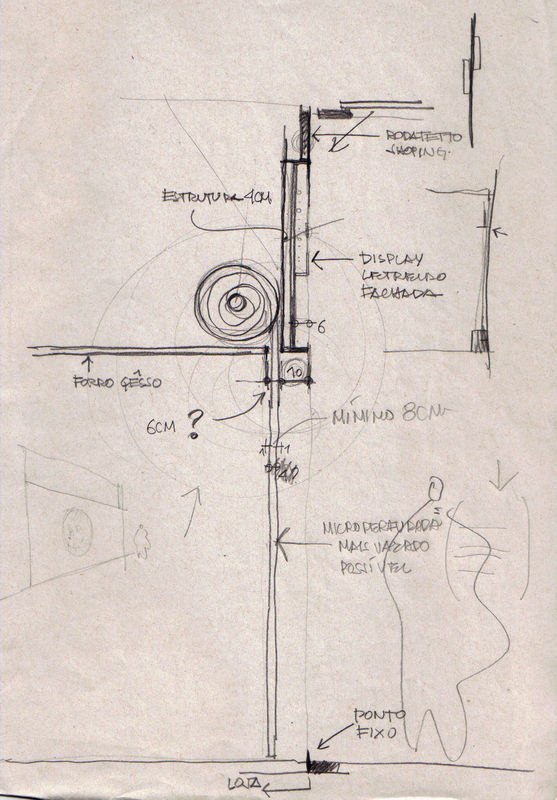 RODATETTO
SHOPING.
ESTRUTURA 4CM
DISPLAY
LETREIRO
FACHADA
6
FORRO GÊSSO
10
6CM ?
MÍNIMO 8CM
MICROPERFURADA
MAIS VAZADO
POSSÍVEL
PONTO
FIXO
LOJA